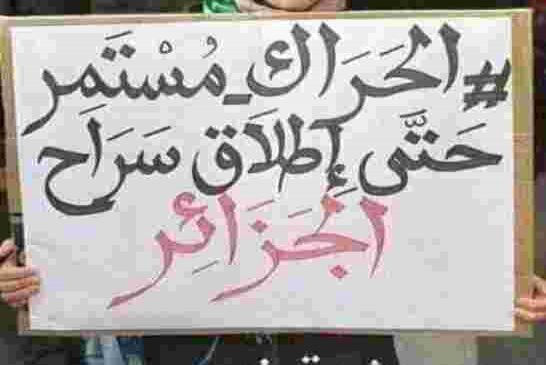 #الحَرَاك_مُسْتَمر
حَتَّى إطلَاق سَرَاح
الجَزَائِر